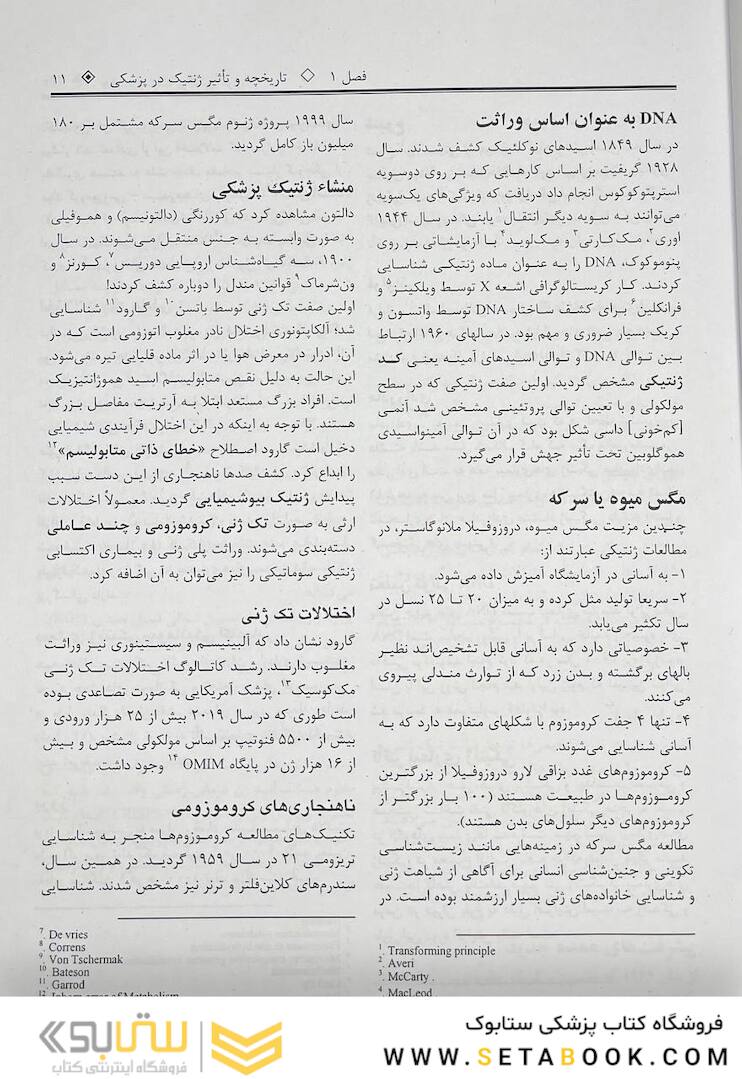 فصل ۱ ◇ تاریخچه و تأثیر ژنتیک در پزشکی ۱۱
DNA به عنوان اساس وراثت
در سال ۱۸۴۹ اسیدهای نوکلئیک کشف شدند. سال
۱۹۲۸ گریفیت بر اساس کارهایی که بر روی دوسویه
استرپتوکوکوس انجام داد دریافت که ویژگی‌های یک‌سویه
می‌توانند به سویه دیگر انتقال۱ یابند. در سال ۱۹۴۴
اوری۲، مک‌کارتی۳ و مک‌لوید۴ با آزمایشاتی بر روی
پنوموکوک، DNA را به عنوان ماده ژنتیکی شناسایی
کردند. کار کریستالوگرافی اشعه X توسط ویلکینز۵ و
فرانکلین۶ برای کشف ساختار DNA توسط واتسون و
کریک بسیار ضروری و مهم بود. در سالهای ۱۹۶۰ ارتباط
بین توالی DNA و توالی اسیدهای آمینه یعنی کد
ژنتیکی مشخص گردید. اولین صفت ژنتیکی که در سطح
مولکولی و با تعیین توالی پروتئینی مشخص شد آنمی
[کم‌خونی] داسی شکل بود که در آن توالی آمینواسیدی
هموگلوبین تحت تأثیر جهش قرار می‌گیرد.
مگس میوه یا سرکه
چندین مزیت مگس میوه، دروزوفیلا ملانوگاستر، در
مطالعات ژنتیکی عبارتند از:
۱- به آسانی در آزمایشگاه آمیزش داده می‌شود.
۲- سریعا تولید مثل کرده و به میزان ۲۰ تا ۲۵ نسل در
سال تکثیر می‌یابد.
۳- خصوصیاتی دارد که به آسانی قابل تشخیص‌اند نظیر
بالهای برگشته و بدن زرد که از توارث مندلی پیروی
می‌کنند.
۴- تنها ۴ جفت کروموزوم با شکلهای متفاوت دارد که به
آسانی شناسایی می‌شوند.
۵- کروموزوم‌های غدد بزاقی لارو دروزوفیلا از بزرگترین
کروموزوم‌ها در طبیعت هستند (۱۰۰ بار بزرگتر از
کروموزوم‌های دیگر سلول‌های بدن هستند).
مطالعه مگس سرکه در زمینه‌هایی مانند زیست‌شناسی
تکوینی و جنین‌شناسی انسانی برای آگاهی از شباهت ژنی
و شناسایی خانواده‌های ژنی بسیار ارزشمند بوده است. در
1. Transforming principle
2. Averi
3. McCarty .
4. MacLeod .
سال ۱۹۹۹ پروژه ژنوم مگس سرکه مشتمل بر ۱۸۰
میلیون باز کامل گردید.
منشاء ژنتیک پزشکی
دالتون مشاهده کرد که کوررنگی (دالتونیسم) و هموفیلی
به صورت وابسته به جنس منتقل می‌شوند. در سال
۱۹۰۰، سه گیاه‌شناس اروپایی دوریس۷، کورنز۸ و
ون‌شرماک۹ قوانین مندل را دوباره کشف کردند!
اولین صفت تک ژنی توسط باتسن۱۰ و گارود۱۱ شناسایی
شد؛ آلکاپتونوری اختلال نادر مغلوب اتوزومی است که در
آن، ادرار در معرض هوا یا در اثر ماده قلیایی تیره می‌شود.
این حالت به دلیل نقص متابولیسم اسید هموژانتیزیک
است. افراد بزرگ مستعد ابتلا به آرتریت مفاصل بزرگ
هستند. با توجه به اینکه در این اختلال فرآیندی شیمیایی
دخیل است گارود اصطلاح «خطای ذاتی متابولیسم»۱۲
را ابداع کرد. کشف صدها ناهنجاری از این دست سبب
پیدایش ژنتیک بیوشیمیایی گردید. معمولاً اختلالات
ارثی به صورت تک ژنی، کروموزومی و چند عاملی
دسته‌بندی می‌شوند. وراثت پلی ژنی و بیماری اکتسابی
ژنتیکی سوماتیکی را نیز می‌توان به آن اضافه کرد.
اختلالات تک ژنی
گارود نشان داد که آلبینیسم و سیستینوری نیز وراثت
مغلوب دارند. رشد کاتالوگ اختلالات تک ژنی
مک‌کوسیک۱۳، پزشک آمریکایی به صورت تصاعدی بوده
است طوری که در سال ۲۰۱۹ بیش از ۲۵ هزار ورودی و
بیش از ۵۵۰۰ فنوتیپ بر اساس مولکولی مشخص و بیش
از ۱۶ هزار ژن در پایگاه OMIM ۱۴ وجود داشت.
ناهنجاری‌های کروموزومی
تکنیک‌های مطالعه کروموزوم‌ها منجر به شناسایی
تریزومی ۲۱ در سال ۱۹۵۹ گردید. در همین سال،
سندرم‌های کلاین‌فلتر و ترنر نیز مشخص شدند. شناسایی
7. De vries
8. Correns
9. Von Tschermak
10. Bateson
11. Garrod
12. Inborn error of Metabolism
فروشگاه کتاب پزشکی ستابوک
WWW.SETABOOK.COM
ستابوک
فروشگاه اینترنتی کتاب